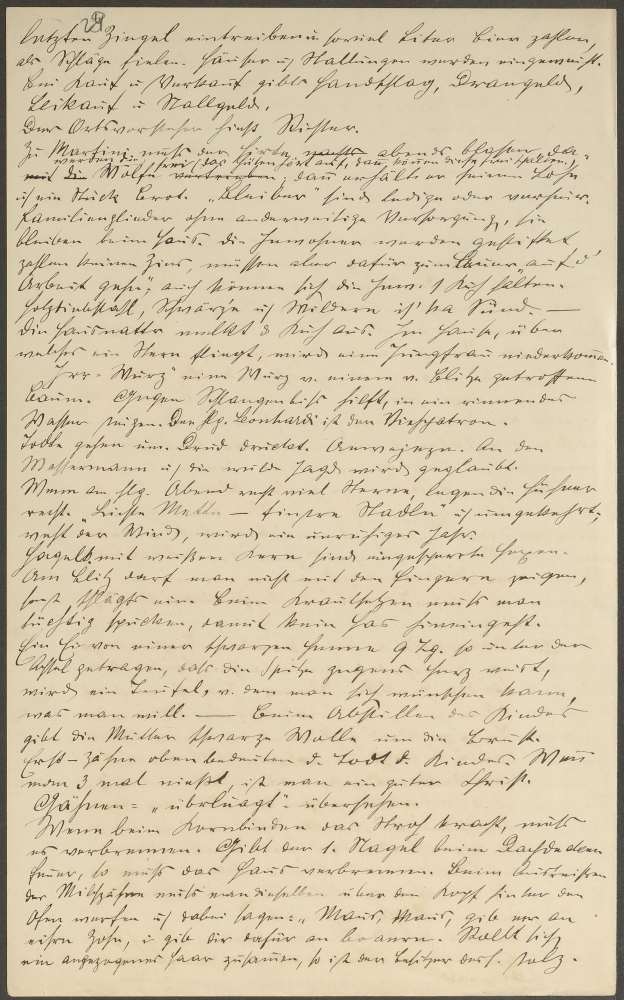 29
letzten Zingel eintreiben u. soviel Liter Bier zahlen,
als Schläge fielen. Häuser u. Stallungen werden eingeweiht.
Bei Kauf u. Verkauf gibts Handschlag, Drangeld,
Leikauf u. Stallgeld.
Der Ortsvorsteher hieß Richter.
Zu Martini muß der Hirte, nachts abends blasen, da
werden die frei, das Hüten hört auf, dann können diese frei
mit die Wölfe vertrieben, dann erhält er seinen Lohn
u. ein Stück Brot. "Bleiber" sind ledige oder verheir.
Familienglieder ohne anderweitige Versorgung, sie
bleiben beim Haus. Die Inwohner werden
zahlen keinen Zins, müssen aber dafür zum Bauer auf d'
Arbeit gehen, auch können sich die Inw. 1 Kuh halten.
Holzdiebstahl, Schwärzn u. Wildern is' ka Sünd. —
Die Hausnatter melkt d. Kuh aus. Im Hause, über
welches ein Stern fliegt, wird eine Jungfrau niederkommen.
"Irr-Wurz" eine Wurz v. einem v. Blitze getroffenen
Baum. Gegen Schlangenbiß hilft, in ein rinnendes
Wasser steigen. Der hlg. Leonhardi ist der Viehpatron.
Tote gehen um. Drud drückt. An den
Wassermann u. die wilde Jagd wird geglaubt.
Wenn am hlg. Abend recht viel Sterne, legen die Hühner
recht. "Lichte Metten — finstre Stadln" u. umgekehrt;
weht der Wind, wird ein unruhiges Jahr.
Hagelk. mit weißem Kern sind Hexen.
Am Blitz darf man nicht mit den Fingern zeigen,
sonst schlägts ein. Beim Krautsetzen muß man
tüchtig spucken, damit kein Has hineingeht.
Ein Ei von einer schwarzen Henne 9 Tg. so unter der
Achsel getragen, daß die Spitze gegens Herz weist,
wird ein Teufel, v. dem man sich wünschen kann,
was man will. — Beim Abstillen des Kindes
gibt die Mutter schwarze Wolle um die Brust.
Erst-Zähne oben bedeuten d. Tod d. Kindes. Wenn
man 3 mal nießt, ist man ein guter Christ.
Gähnen = "überluagt" - übersehen.
Wenn beim Kornbinden das Stroh kracht, muß
es verbrennen. Gibt der 1. Nagel beim Dachdecken
Feuer, so muß das Haus verbrennen. Beim Ausreißen
der Milchzähne muß man dieselben über den Kopf hinter den
Ofen werfen u. dabei sagen: "Maus, Maus, gib mr an
eisrn Zohn, i gib dir dafür an boanern. Rollt sich
ein ausgezogenes Haar zusammen, so ist der Besitzer dess. stolz.